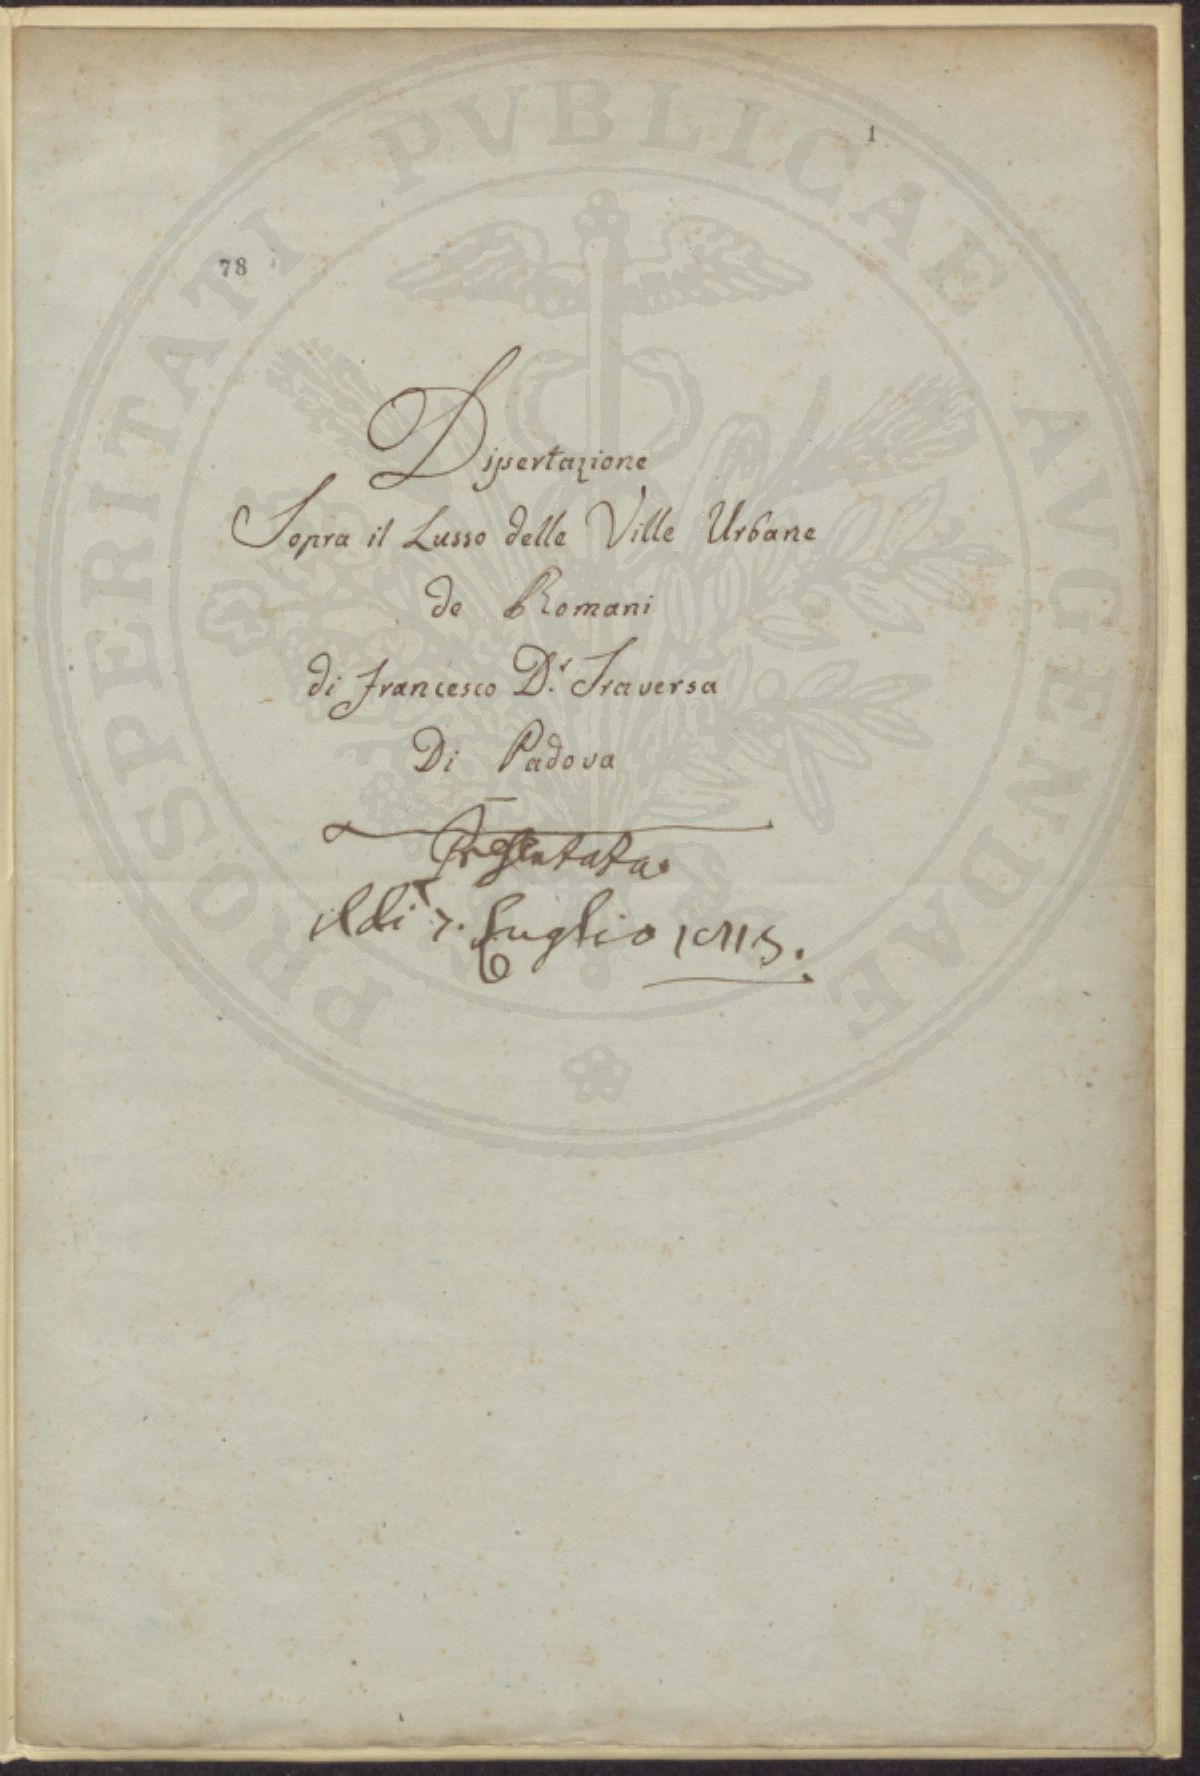 PROSPERITATI PVBLICAE AVGENDAE
1
78
Dissertazione
Sopra il Lusso delle Ville Urbane
de Romani
di Francesco D.r Traversa
Di Padova
Presentata
il dì 7. Luglio